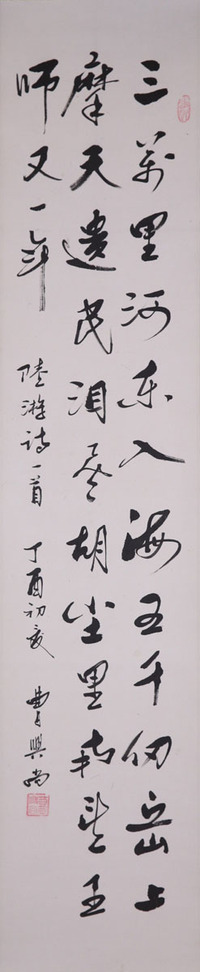 三萬里河东入海五千仞岳上
摩天遺民泪尽胡尘里南望王
师又一年
陸游诗一首 丁酉初夏 曹興